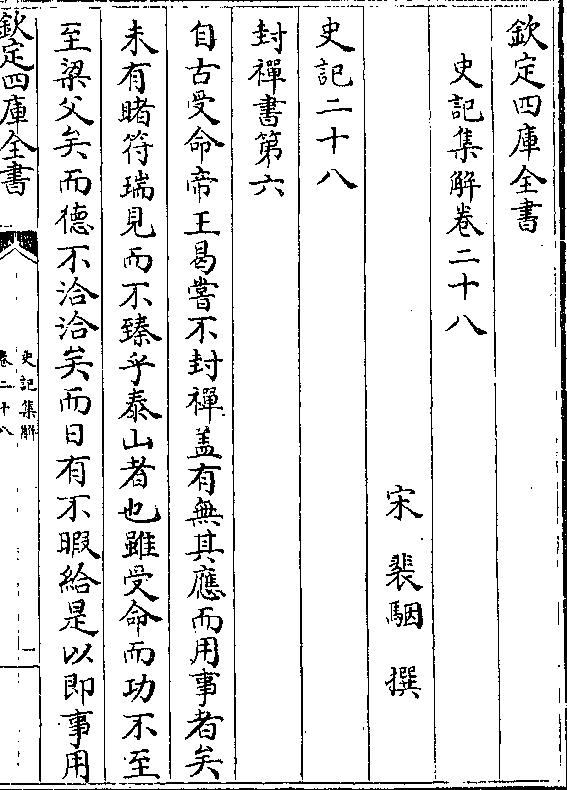 欽定四庫全書
史記集解卷二十八
宋 裴駰 撰
史記二十八
封禪書第六
自古受命帝王曷嘗不封禪盖有無其應而用事者矣
未有睹符瑞見而不臻乎泰山者也雖受命而功不至
至梁父矣而德不洽洽矣而日有不暇給是以即事用
欽定四庫全書
史記集解
卷二十八
一